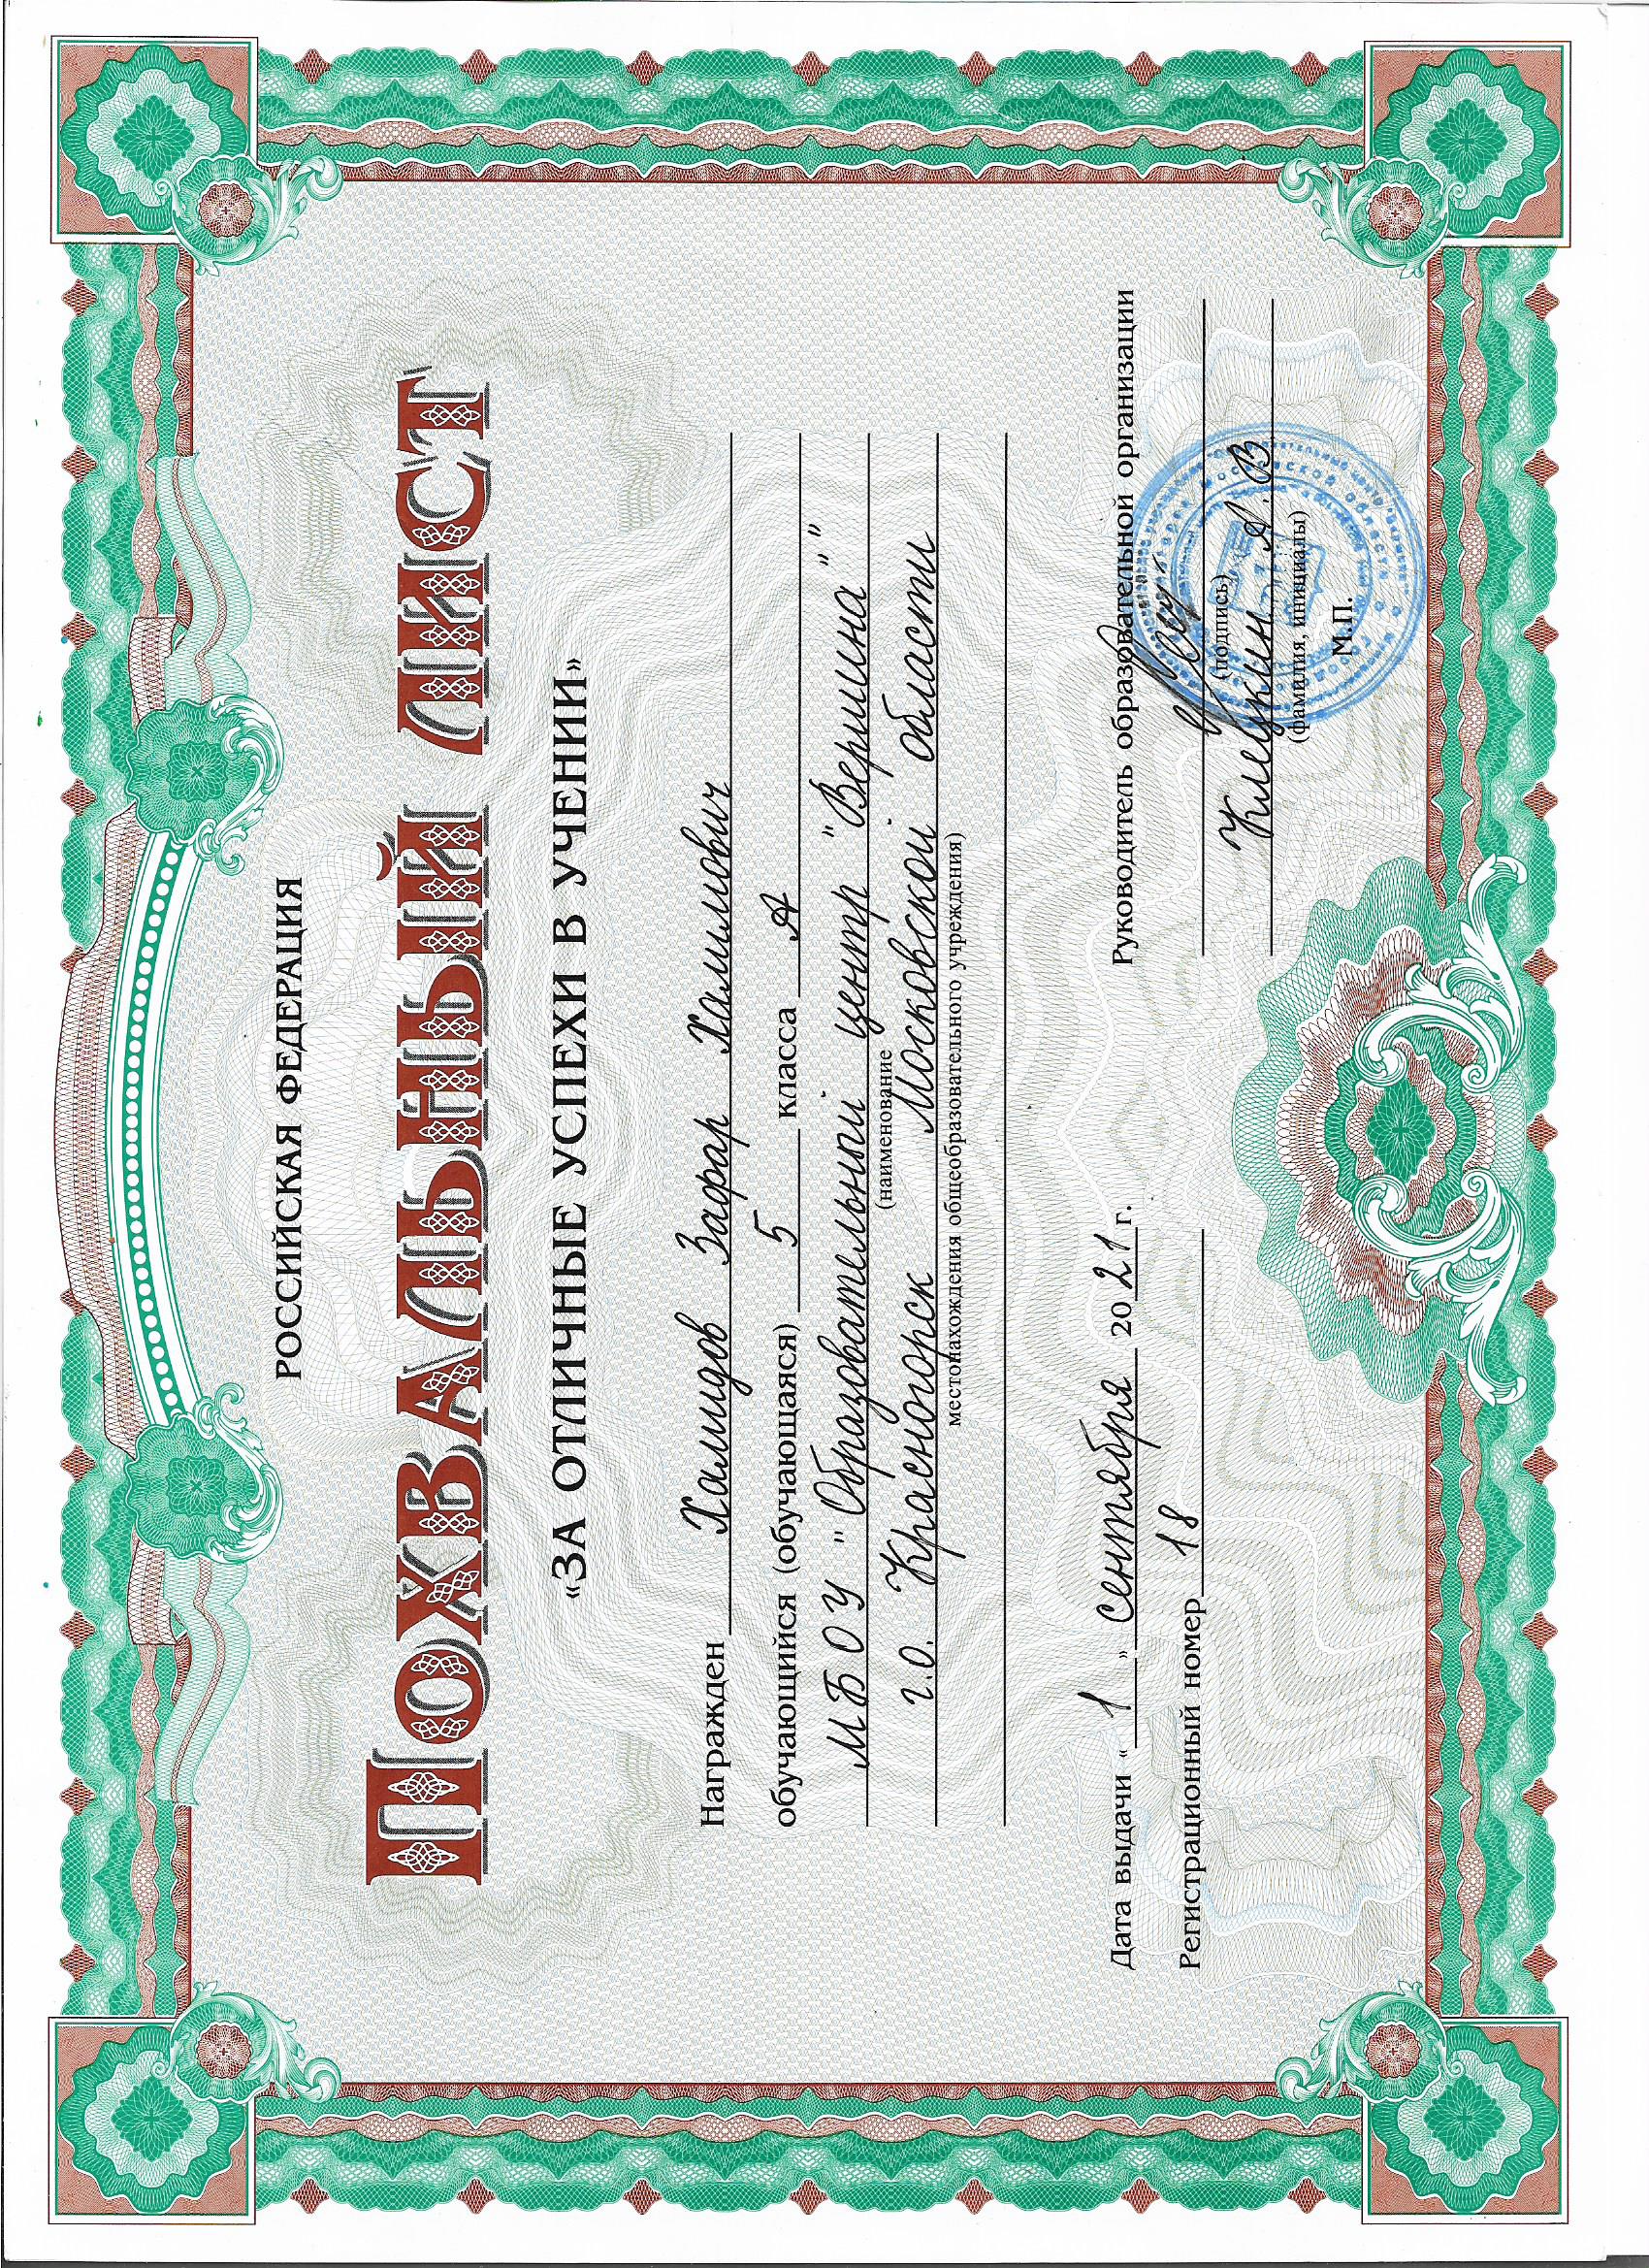 РОССИЙСКАЯ ФЕДЕРАЦИЯ
ПОХВАЛЬНЫЙ ЛИСТ
«ЗА ОТЛИЧНЫЕ УСПЕХИ В УЧЕНИИ»
Награжден Хамидов Зафар Халимович
обучающийся (обучающаяся) 5 класса А
МБОУ "Образовательный центр "Вершина""
(наименование
г.о. Красногорск Московской области
местонахождения общеобразовательного учреждения)
Дата выдачи «1» сентября 2021 г.
Руководитель образовательной организации
Регистрационный номер 18
(подпись)
Клецкин А.В
(фамилия, инициалы)
М.П.